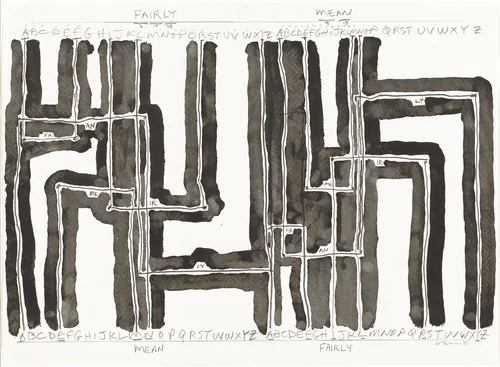 FAIRLY MEAN
ABCDEFGHIJKLMNOPQRSTUVWXYZ ABCDEFGHIJKLMNOPQRSTUVWXYZ
LY
AN
FA
IR
ME
ME
IR
FA
AN
LY
ABCDEFGHIJKLMNOPQRSTUVWXYZ ABCDEFGHIJKLMNOPQRSTUVWXYZ
MEAN FAIRLY